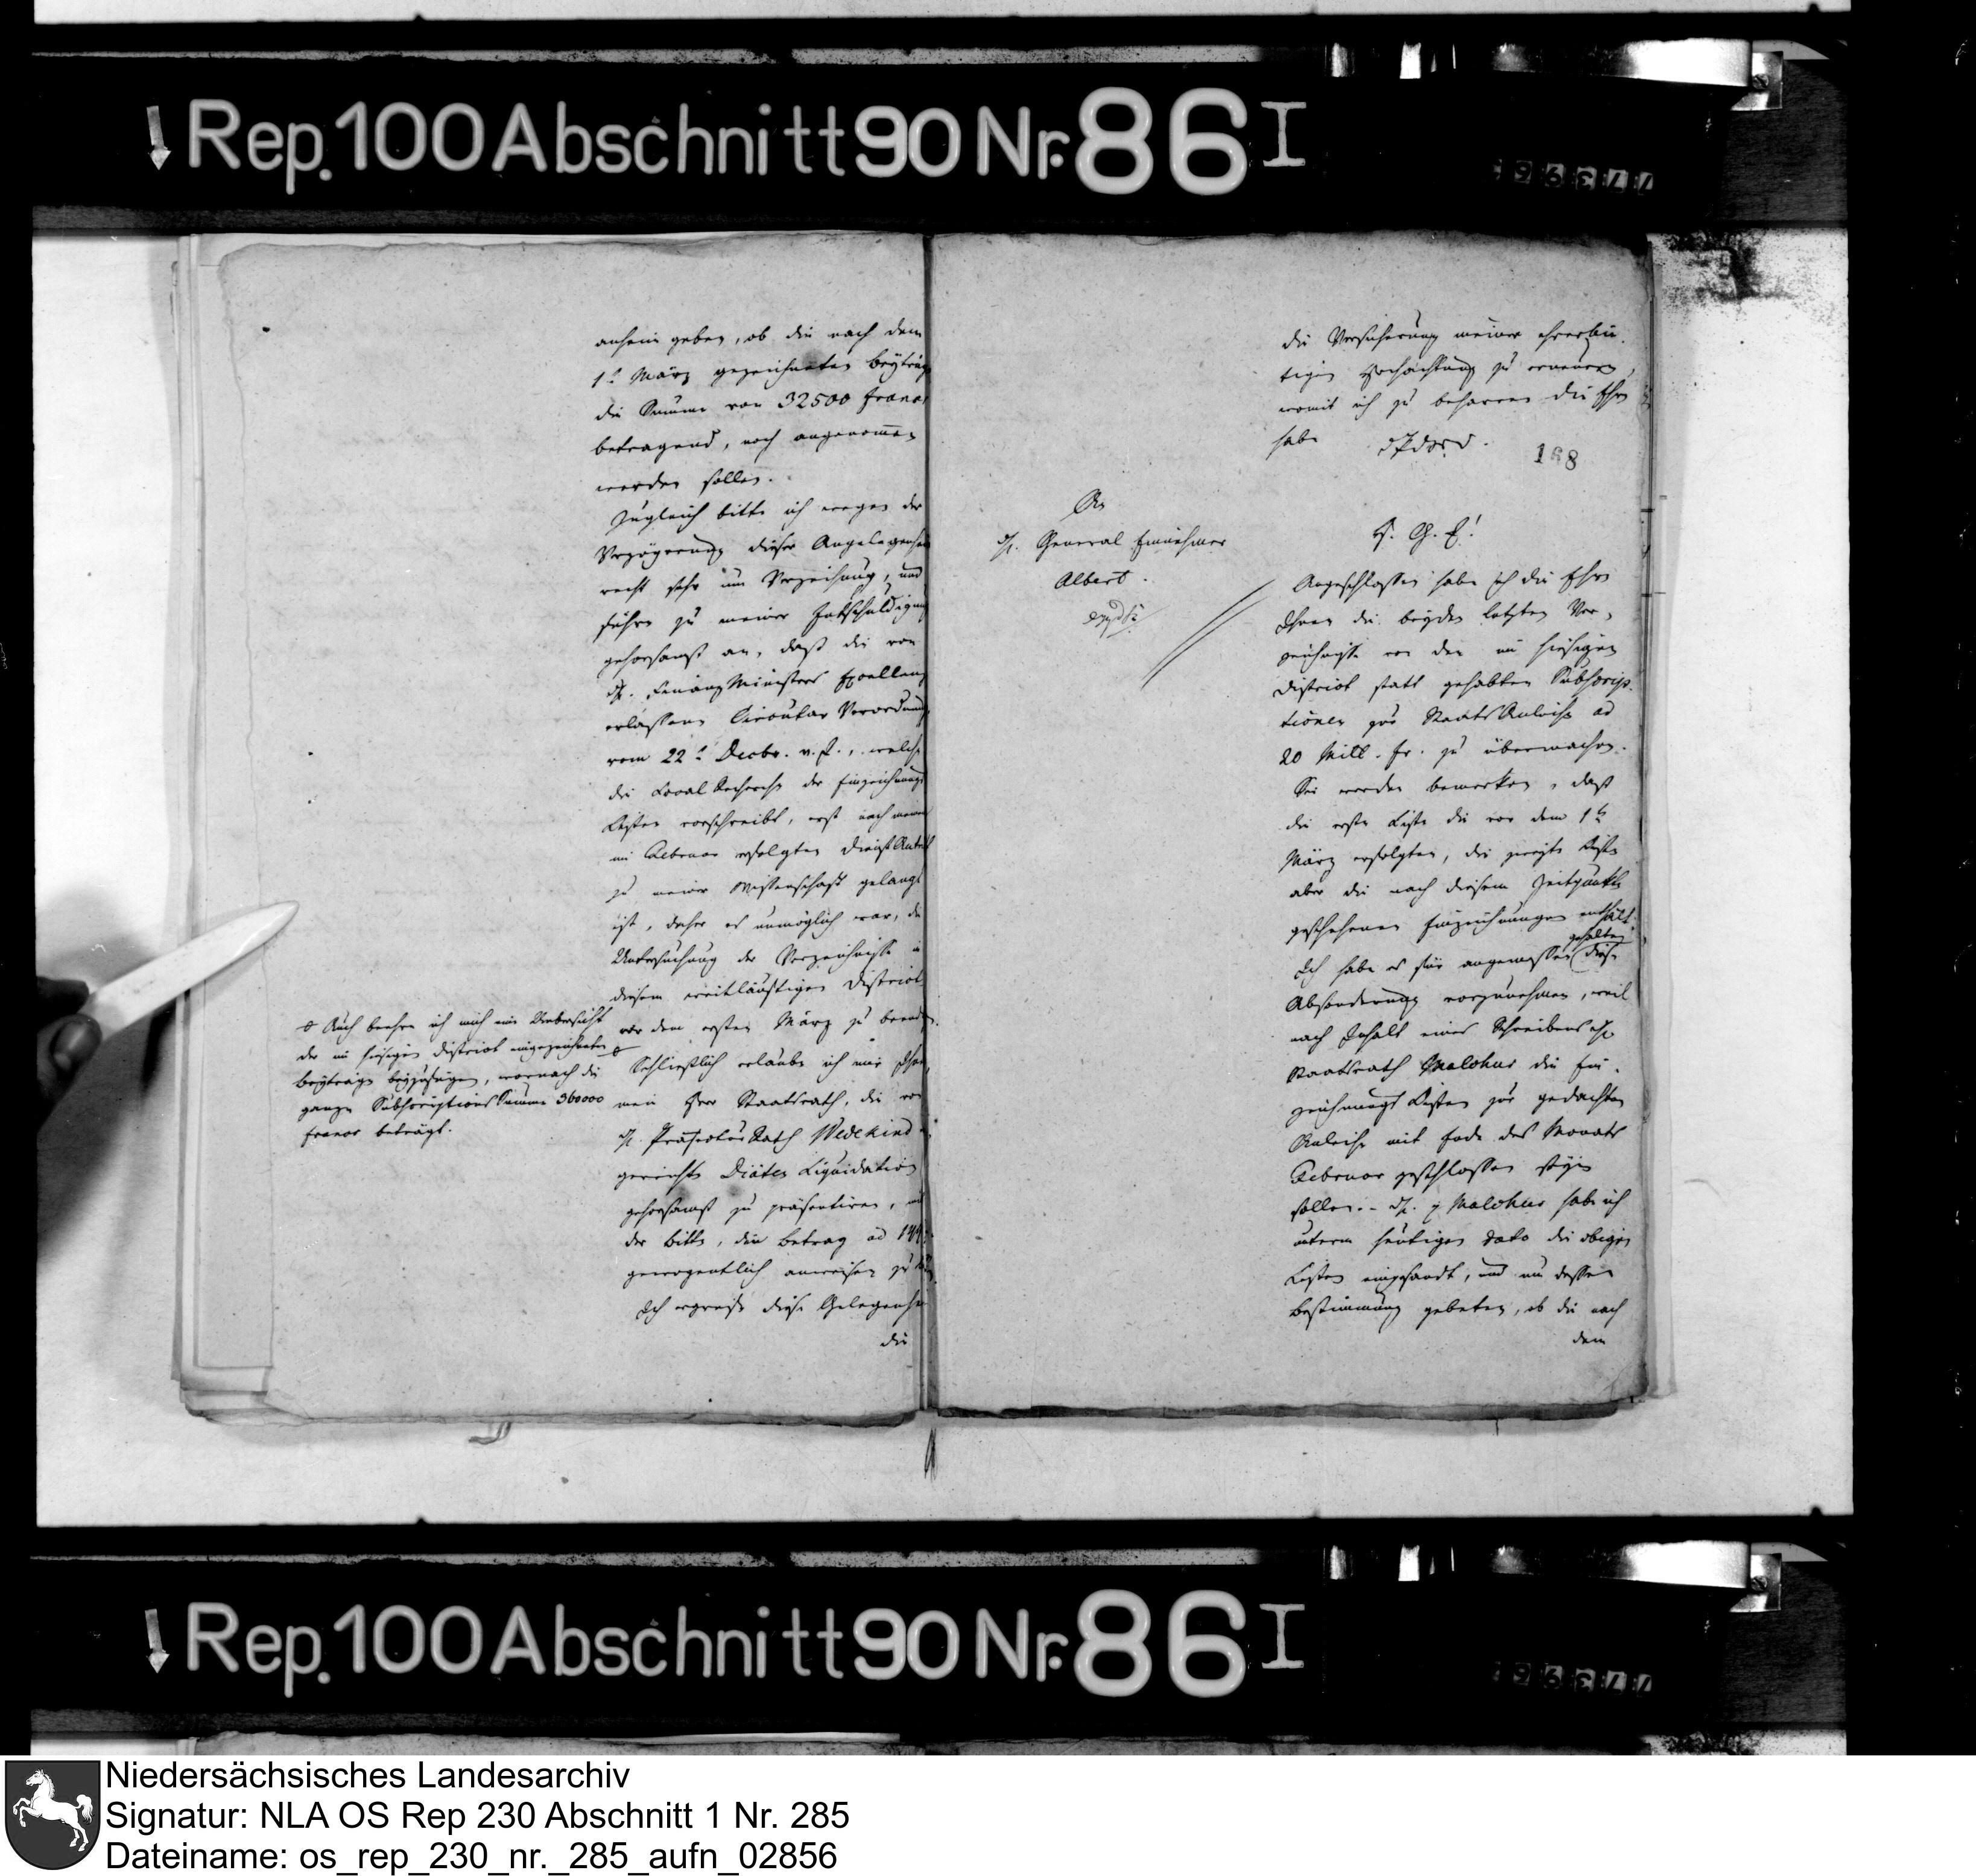 Rep. 100 Abschnitt 90 Nr. 86 I
anheim geben, ob die nach dem
1t. März gezeichneten Beyträge
die Summe von 32500 Francs
betragend, noch angenommen
werden sollen.
Zugleich bitte ich wegen der
Verzögerung dieser Angelegenheit
recht sehr um Verzeihung, und
führe zu meiner Entschuldigung
gehorsamst an, daß die von
H. Finanz Ministers Excellenz
erlassene Circular Verordnung
vom 22t. Decbr. v. J., welche
die Local Recherche der Einzeichnungs
Listen vorschreibt, erst nach meinem
im Februar erfolgten Dienst Antritt
zu meiner Wissenschaft gelangt
ist, daher es unmöglich war, die
Untersuchung der Verzeichnisse in
diesem weitläuftigen District
vor dem ersten März zu beenden.
Schließlich erlaube ich mir Ihnen,
mein Herr Staatsrath, die von
H. Präfectur Rath Wedekind
gereichte Diäten Liquidation
gehorsamst zu präsentiren, mit
der Bitte, den Betrag ad 144
gewogentlich anweisen zu
Ich ergreife diese Gelegenheit
die
Auch beehre ich mich eine Uebersicht
der im hiesigen District eingezeichneten
Beyträge beyzufügen, wornach die
ganze Subscriptions Summe 360000
Francs beträgt.
die Versicherung meiner ehrerbie-
tigen Hochachtung zu erneuern,
womit ich zu beharren die Ehre
habe
168
An
H. General Einnehmer
Albert.
H. G. E!
Angeschlossen habe ich die Ehre
Ihnen die beyden letzten Ver-
zeichnisse von den im hiesigen
District statt gehabten Subscrip-
tionen zur Staats Anleihe ad
20 Mill. fr. zu übermachen.
Sie werden bemerken, daß
die erste Liste die vor dem 1t
März erfolgten, die zweyte Liste
aber die nach diesem Zeitpunkte
geschehenen Einzeichnungen enthält.
Ich habe es für angemessen gehalten diese
Absonderung vorzunehmen, weil
nach Inhalt eines Schreibens H.
Staatsrath Malchus die Ein-
zeichnungs Listen zur gedachten
Anleihe mit Ende des Monats
Februar geschlossen seyn
sollen. - H. p Malchus habe ich
unterm heutigen dato die obigen
Listen eingesandt, und um dessen
Bestimmung gebeten, ob die nach
dem
Rep. 100 Abschnitt 90 Nr. 86 I
Niedersächsisches Landesarchiv
Signatur: NLA OS Rep 230 Abschnitt 1 Nr. 285
Dateiname: os_rep_230_nr._285_aufn_02856